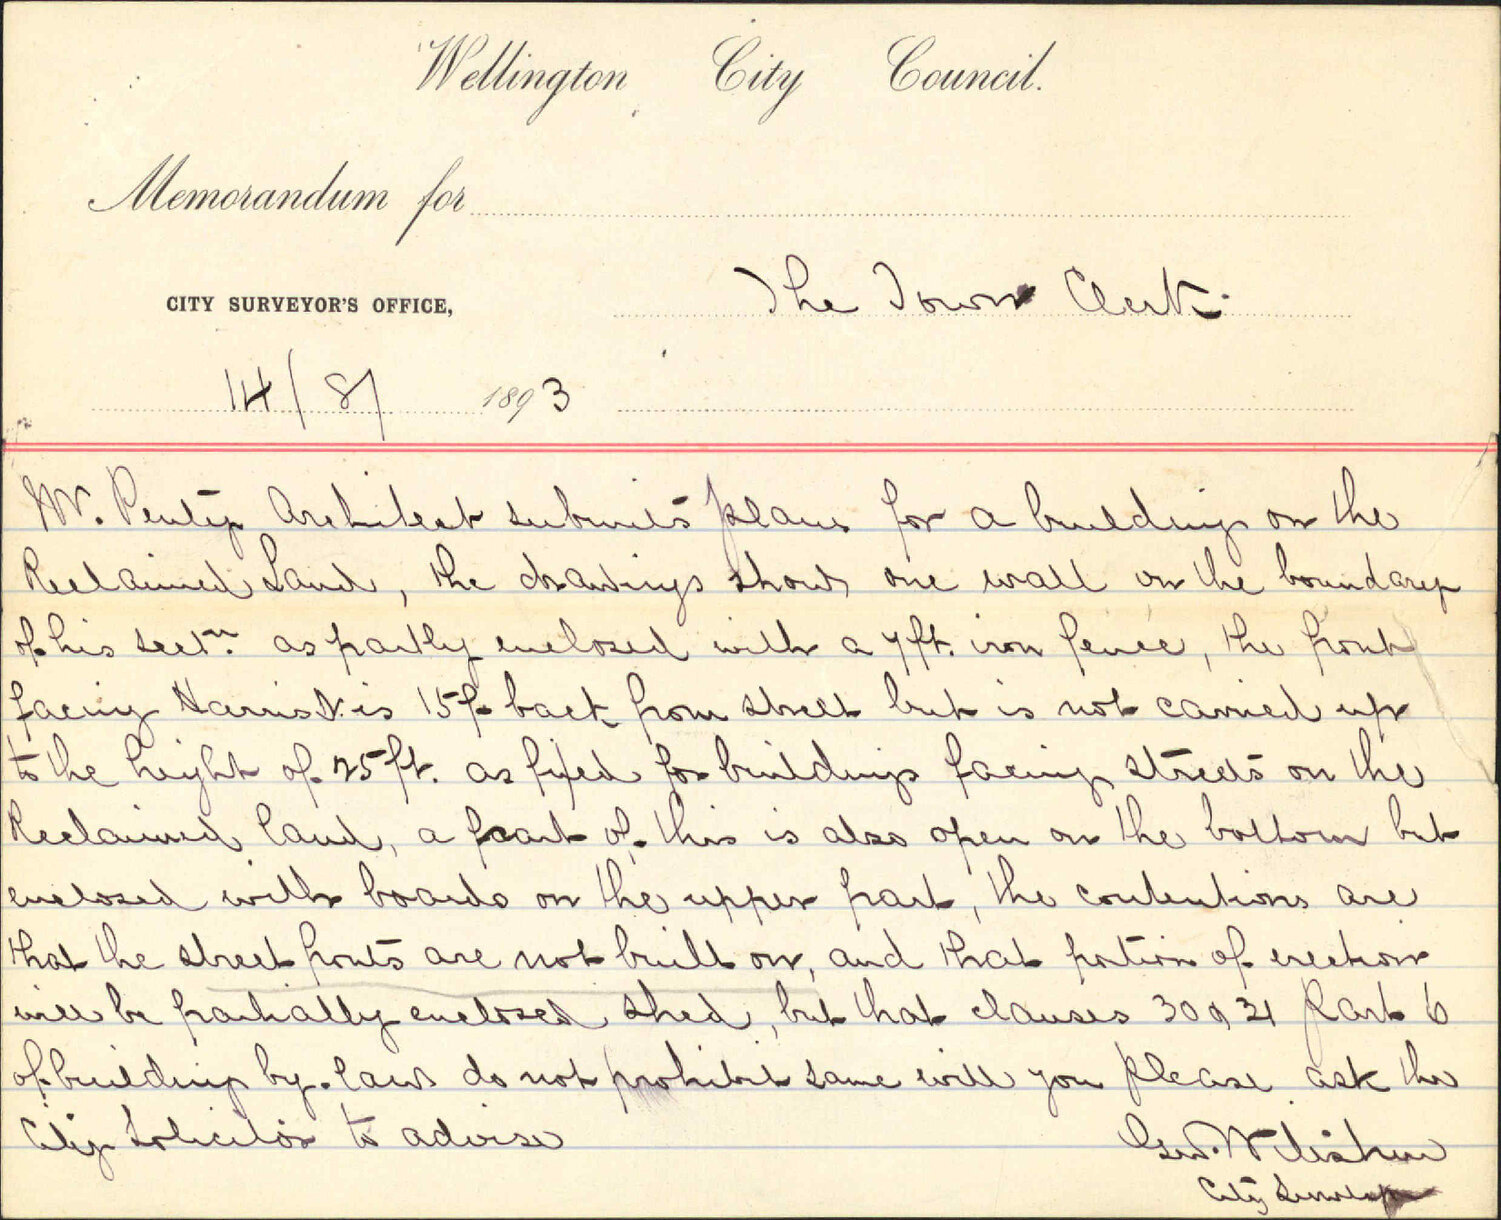 Wellington City Council.
Memorandum for
CITY SURVEYOR'S OFFICE,
The Town Clerk.
14/8/ 1893
Mr. Penty Architect submits plans for a building on the
Reclaimed Land, the drawings shows one wall on the boundary
of his sectn. as partly enclosed with a 7ft. iron fence, the front
facing Harris St. is 15ft back from street but is not carried up
to the height of 25ft. as fixed for buildings facing streets on the
Reclaimed land, a part of this is also open on the bottom but
enclosed with boards on the upper part, the contentions are
that the street fronts are not built on, and that portion of erection
will be partially enclosed shed, but that clauses 30 & 31 Part 6
of building by-laws do not prohibit same will you please ask the
City Solicitor to advise
Geo. Wiltshire
City Surveyor